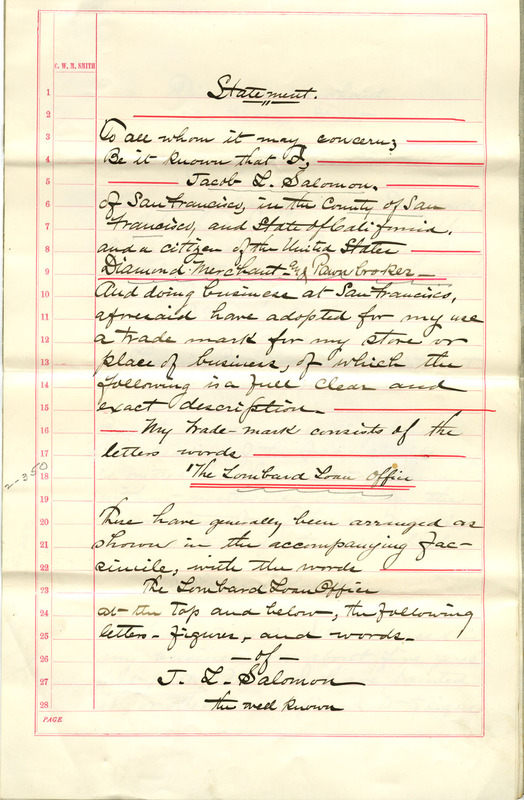 C. W. M. SMITH
1 Statement.
2
3 To all whom it may concern;
4 Be it known that I,
5 Jacob L. Salomon,
6 of San Francisco, in the County of San
7 Francisco, and State of California,
8 and a citizen of the United States
9 Diamond Merchant and Pawnbroker
10 And doing business at San Francisco,
11 aforesaid have adopted for my use
12 a trade mark for my store or
13 place of business, of which the
14 following is a full clear and
15 exact description.
16 My Trade-mark consists of the
17 letters words
18 "The Lombard Loan Office
2-350
19
20 These have generally been arranged as
21 shown in the accompanying fac-
22 simile, with the words
23 The Lombard Loan Office
24 at the top and below, the following
25 letters - figures, and words -
26 - of -
27 J. L. Salomon
28 the well known
PAGE